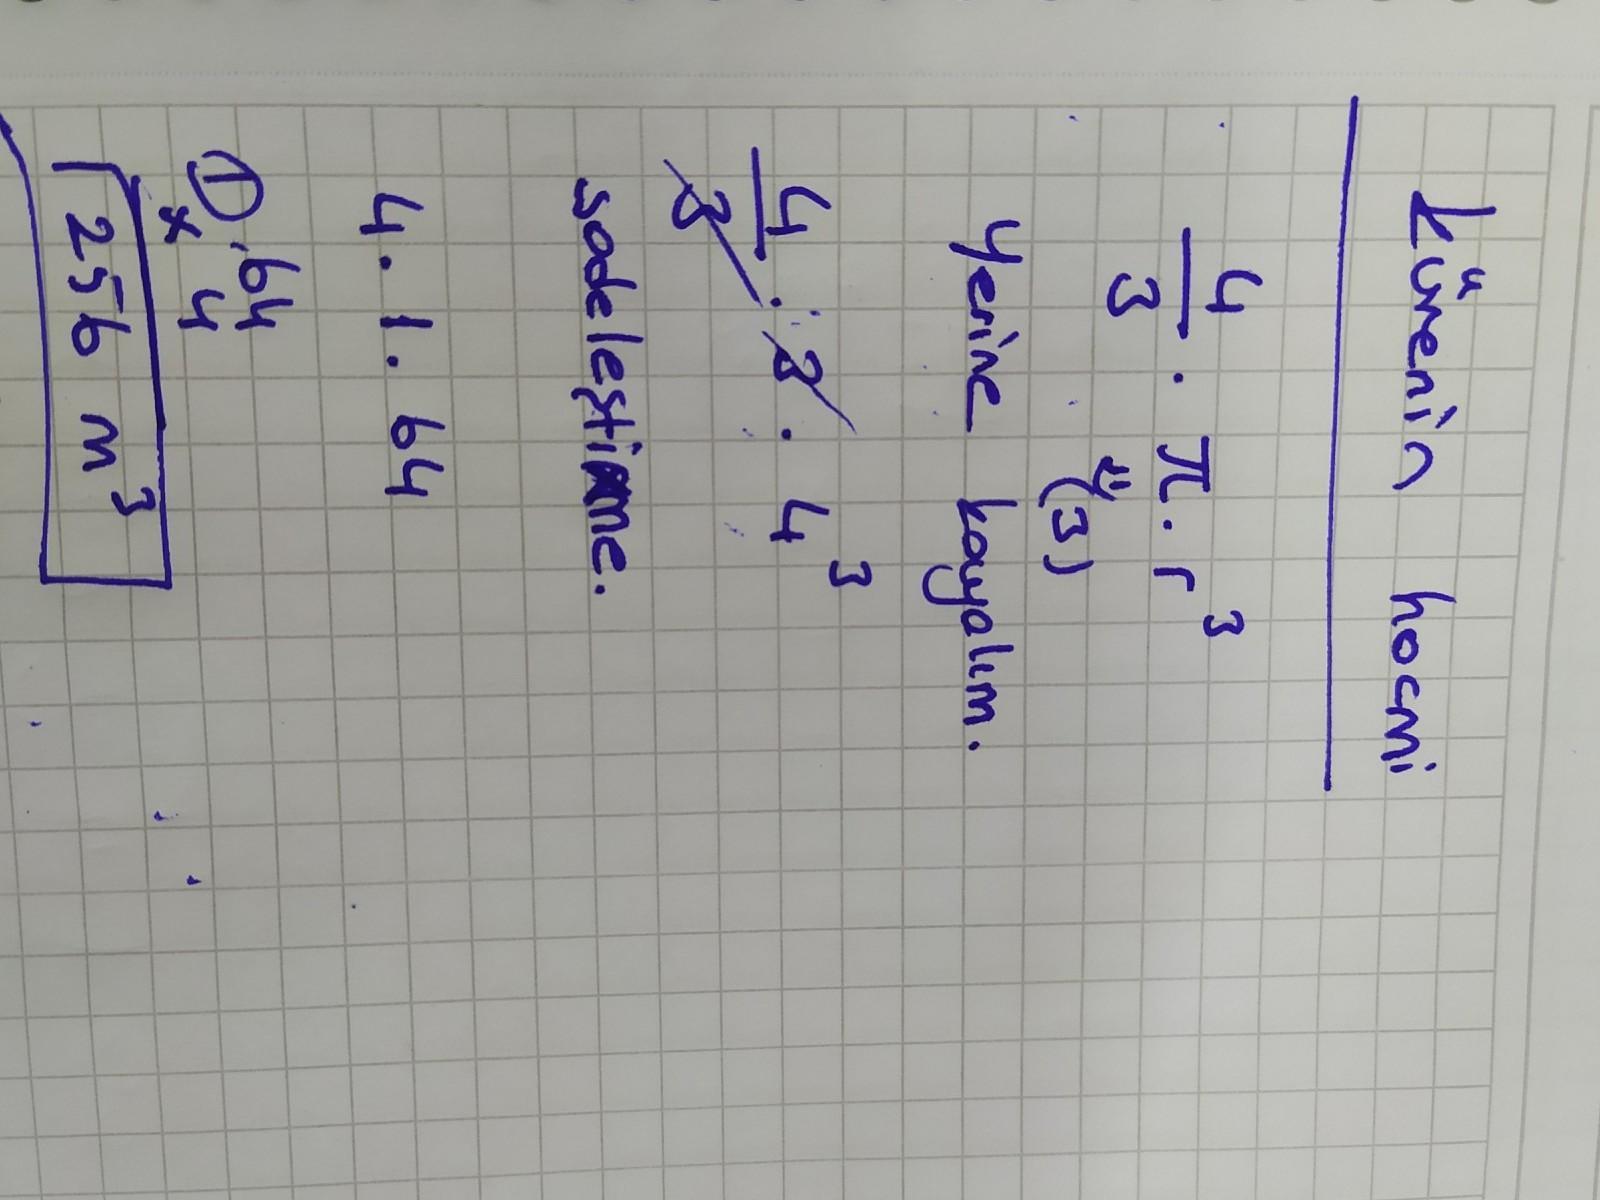 Kürenin hacmi
4/3 . π . r³
(3)
Yerine koyalım.
4/3 . 3 . 4³
sadeleştirme.
4 . 1 . 64
① 64
x 4
256 m³